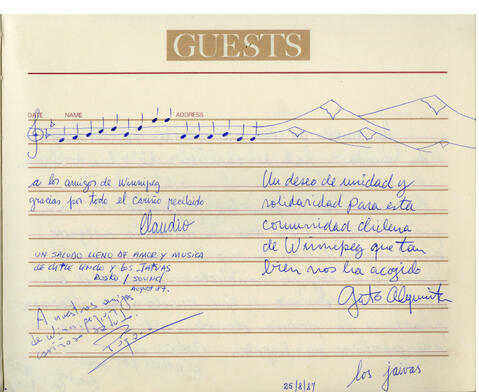 GUESTS
DATE NAME ADDRESS
a los amigos de Winnipeg
gracias por todo el cariño recibido
Claudio
UN SALUDO LLENO DE AMOR Y MUSICA
DE CHILE LINDO Y LOS JAIVAS
/ SOUND /
August 87.
A nuestros amigos
de Winnipeg
cariñoso
Un deseo de unidad y
solidaridad para esta
comunidad chilena
de Winnipeg que tan
bien nos ha acogido
Gato Alquinta
los jaivas
25/8/87